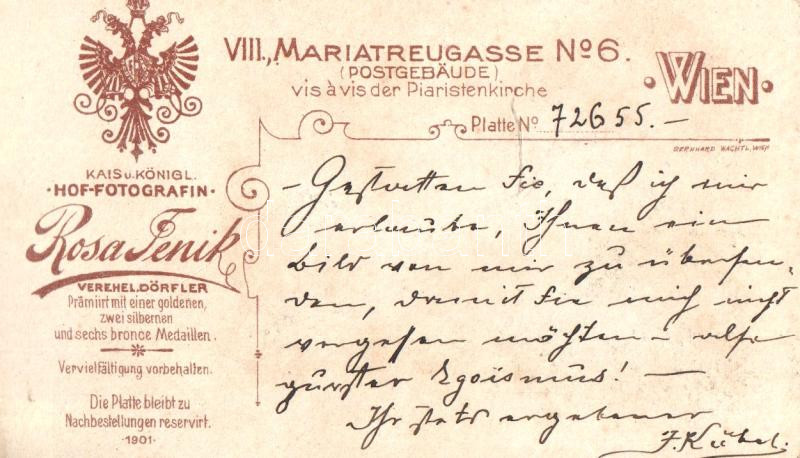 VIII., MARIATREUGASSE No 6.
(POSTGEBÄUDE)
vis à vis der Piaristenkirche
·WIEN·
Platte No 72655.—
BERNHARD WACHTL, WIEN
KAIS u. KÖNIGL.
·HOF-FOTOGRAFIN·
Rosa Jenik
VEREHEL. DÖRFLER
Prämiirt mit einer goldenen,
zwei silbernen
und sechs bronce Medaillen.
Vervielfältigung vorbehalten.
Die Platte bleibt zu
Nachbestellungen reservirt.
·1901·
– Gestatten Sie, daß ich mir
erlaube, Ihnen ein
Bild von mir zu übersen-
den, damit Sie mich nicht
vergessen möchten – also
purster Egoismus! —
Ihr stets ergebener
J. Kübel.